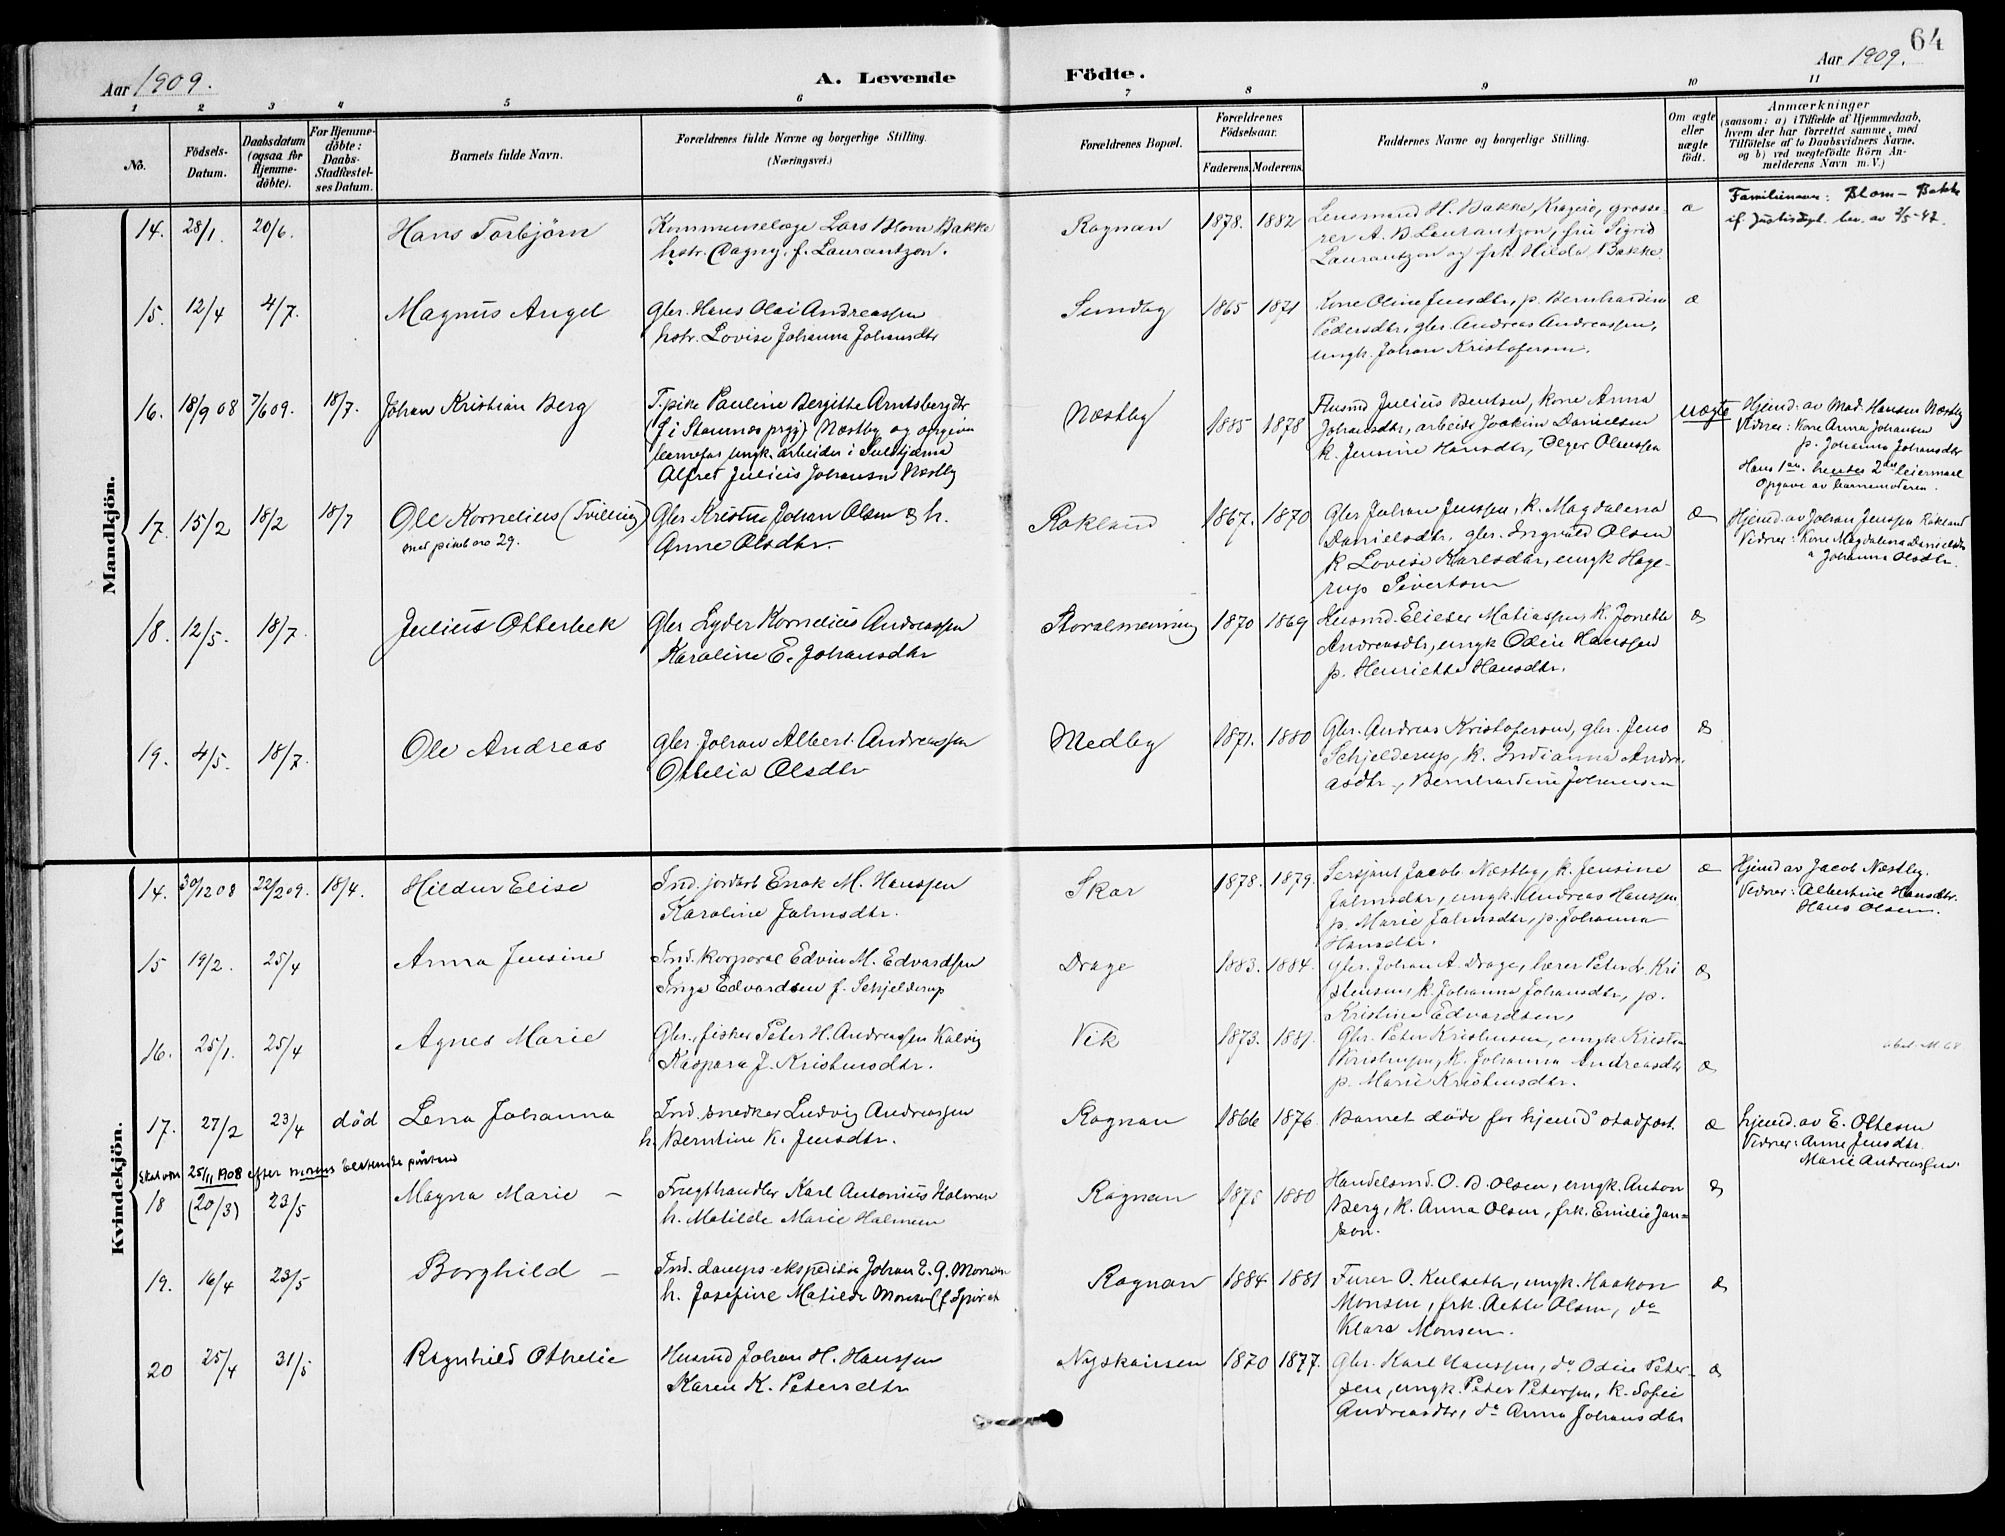 64
Aar 1909.
A. Levende
Födte.
Aar 1909.
1 2 3 4 5 6 7 8 9 10 11
No.
Födsels-Datum.
Daabsdatum (ogsaa for Hjemme-döbte).
For Hjemme-döbte: Daabs-Stadfæstel-ses Datum.
Barnets fulde Navn.
Forældrenes fulde Navne og borgerlige Stilling.
(Næringsvei.)
Forældrenes Bopæl.
Forældrenes Födselsaar.
Faderens. Moderens.
Faddernes Navne og borgerlige Stilling.
Om ægte eller uægte födt.
Anmærkninger
(saasom: a) i Tilfælde af Hjemmedaab,
hvem der har forrettet samme, med
Tilföielse af to Daabsvidners Navne,
og b) ved uægtefödte Börn An-
melderens Navn m. V.)
Mandkjön.
14. 28/1. 20/6. Hans Torbjörn
Kommunelæge Lars Blom Bakke
hstr. Dagny, f. Laurantzon.
Rognan 1878. 1882
Lensmand H. Bakke, Kragerö, grosse-
rer A. B. Laurantzon, fru Sigrid
Laurantzon og frk. Hilda Bakke
æ
Familienavn: Blom-Bakke
if. Justisdpt. bev. av 2/5-47.
15. 12/4 4/7. Magnus Angel
Gbr. Hans Olai Andreassen
hstr. Lovise Johanna Johansdtr
Sundby 1865 1871
Kone Oline Jensdtr, p. Bernhardine
Pedersdtr, gbr. Andreas Andreassen,
ungk. Johan Kristofersen.
æ
16. 18/9 08 7/6 09. 18/7. Johan Kristian Berg
T.pike Pauline Bergitte Arntsbergdtr
(f i Stamnes prgj) Næstby og opgiven
barnefar ungk. arbeider i Sulitjelma
Alfret Julius Johansen Næstby
Næstby 1885 1878
Husmd Julius Bentsen, kone Anna
Johansdtr, arbeider Joakim Danielsen
k. Jensine Hansdtr, Olger Olaussen
uægte
Hjemd. av Mad. Hansen Næstby
Vidner: Kone Anna Johansen
p. Johanna Johansdtr
Hans 1ste hendes 2det leiermaal
Opgave av barnemoderen.
17. 15/2 18/2 18/7 Ole Kornelius (Tvilling)
med pikebarn 29.
Gbr Kristen Johan Olsen & h.
Anne Olsdtr.
Rokland 1867. 1870
Gbr Johan Jenssen, k. Magdalena
Danielsdtr, gbr. Ingvald Olsen
k Lovise Karlsdtr, ungk Hage-
rup Sivertsen
æ
Hjemd. av Johan Jenssen Rokland
Vidner: Kone Magdalena Danielsdtr
" Johanna Olsdtr.
18. 12/5. 18/7. Julius Otterbek
Gbr Lyder Kornelius Andreassen
Karoline E. Johansdtr
Storalmenning 1870 1869
Husmd. Elieser Matiassen, k. Jonette
Andreasdtr, ungk Odin Hanssen
p. Henriette Hansdtr.
æ
19. 4/5. 18/7. Ole Andreas
Gbr. Johan Albert Andreassen
Otelia Olsdtr
Medby 1871. 1880
Gbr. Andreas Kristofersen, gbr. Jens
Schjelderup, k. Indianna Andre-
asdtr, Bernhardine Johansen
æ
Kvindekjön.
14. 30/12 08 22/2 09. 18/4. Hildur Elise
Ind. jordarb Enok M. Hanssen
Karoline Jakmsdtr.
Skar 1878. 1879.
Sersjant Jacob Næstby, k. Jensine
Jalmsdtr, ungk. Andreas Hanssen
p. Marie Jalmsdtr, p. Johanna
Hansdtr.
æ
Hjemd av Jacob Næstby.
Vidner: Albertine Hansdtr.
Hans Olsen.
15 19/2. 25/4 Anna Jensine
Ind. korporal Edvin M. Edvardsen
Inga Edvardsen f. Schjelderup
Drage 1883. 1884.
Gbr. Johan A. Drage, lærer Peter Kri
stensen, k. Johanna Johansdtr, p.
Kristine Edvardsen,
æ
16. 25/1. 25/4 Agnes Marie
Gbr., fisker Peter H. Andreassen Kalvig
Kaspara J. Kristensdtr.
Vik 1873. 1881.
Gbr. Peter Kristensen, ungk Kristen
Kristensen, k. Johanna Andreasdtr
p. Marie Kristensdtr.
æ
17. 27/2 23/4 död Lena Johanna
Ind. snedker Ludvig Andreassen
h. Berntine K. Jensdtr.
Rognan 1866 1876.
Barnet döde för hjemd. stadfæst.
æ
Hjemd. av E. Ottesen
Vidner: Anne Jensdtr.
Marie Andreassen.
Skal være 25/11 1908 efter morens bestemte påstand
18 (20/3) 23/5 Magna Marie –
Fragthandler Karl Antonius Halmen
h. Matilde Marie Halmen
Rognan 1875 1880
Handelsmd. O. B. Olsen, ungk. Anton
Berg, k. Anna Olsen, frk. Emilie Jan-
son.
æ
19. 16/4 23/5 Borghild –
Ind. damps.ekspeditör Johan E. G. Monsen
h. Josefine Matilde Monsen
Rognan 1884 1881
Furer O. Kulseth, ungk. Haakon
Monsen, frk. Aette Olsen, do
Klara Monsen.
æ
20 25/4 31/5 Ragnhild Othelie
Husmd Johan H. Hanssen
Karen K. Petersdtr
Nyskaiseen 1870 1877.
Gbr. Karl Hanssen, do Odin Peter-
sen, ungk. Peter Petersen, k. Sofie
Andreasdtr, do Anna Johansdtr
æ